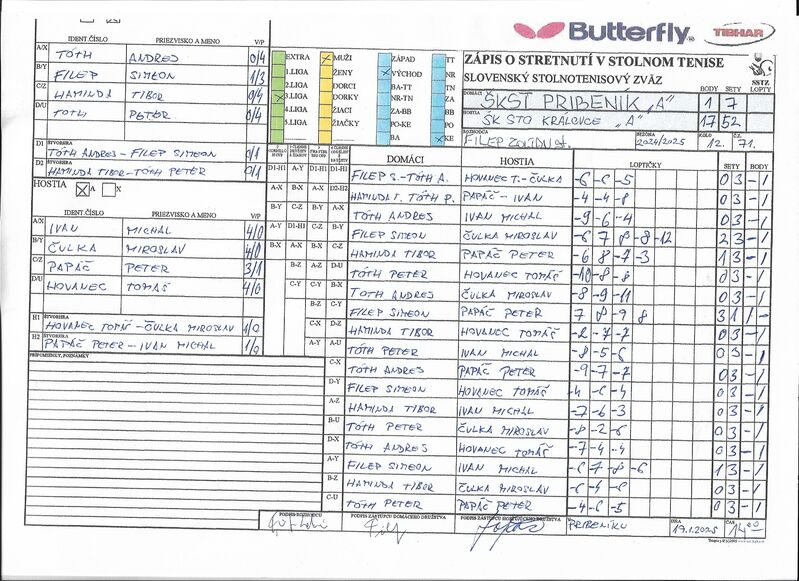 Butterfly
TIBHAR
ZÁPIS O STRETNUTÍ V STOLNOM TENISE
SLOVENSKÝ STOLNOTENISOVÝ ZVÄZ
SSTZ
DOMÁCI ŠKST PRIBENÍK „A" BODY SETY LOPTY
1 7
HOSTIA ŠK STO KRALOVCE „A" 17 52
ROZHODCA FILEP SEZÓNA 2024/2025 KOLO 12. Č. 71.
IDENT.ČÍSLO PRIEZVISKO A MENO V/P
A/X TÓTH ANDREJ 0/4
B/Y FILEP SIMEON 1/3
C/Z HAMINDA TIBOR 0/4
D/U TÓTH PETER 0/4
D1 ŠTVORHRA TÓTH ANDREJ - FILEP SIMEON 0/1
D2 HAMINDA TIBOR - TÓTH PETER 0/1
HOSTIA A X
IDENT.ČÍSLO PRIEZVISKO A MENO V/P
A/X IVAN MICHAL 4/0
B/Y ČULKA MIROSLAV 4/0
C/Z PAPÁČ PETER 3/1
D/U HOVANEC TOMÁŠ 4/0
H1 ŠTVORHRA HOVANEC TOMÁŠ - ČULKA MIROSLAV 1/0
H2 ŠTVORHRA PAPÁČ PETER - IVAN MICHAL 1/0
PRIPOMIENKY, POZNÁMKY
EXTRA MUŽI ZÁPAD TT
1.LIGA ŽENY VÝCHOD NR
2.LIGA DORCI BA-TT TN
3.LIGA DORKY NR-TN ZA
4.LIGA ŽIACI ZA-BB BB
5.LIGA ŽIAČKY PO-KE PO
BA KE
DOMÁCI HOSTIA LOPTIČKY SETY BODY
FILEP S. - TÓTH A. HOVANEC T. - ČULKA -6 -6 -5 0 3 - 1
HAMINDA T. TÓTH P. PAPÁČ - IVAN -4 -4 -8 0 3 - 1
TÓTH ANDREJ IVAN MICHAL -9 -6 -4 0 3 - 1
FILEP SIMEON ČULKA MIROSLAV -6 7 8 -8 -12 2 3 - 1
HAMINDA TIBOR PAPÁČ PETER -6 8 -7 -3 1 3 - 1
TÓTH PETER HOVANEC TOMÁŠ -10 -8 -8 0 3 - 1
TÓTH ANDREJ ČULKA MIROSLAV -8 -9 -11 0 3 - 1
FILEP SIMEON PAPÁČ PETER 7 8 -9 8 3 1 1 -
HAMINDA TIBOR HOVANEC TOMÁŠ -2 -7 -7 0 3 - 1
TÓTH PETER IVAN MICHAL -8 -5 -6 0 3 - 1
TÓTH ANDREJ PAPÁČ PETER -9 -7 -7 0 3 - 1
FILEP SIMEON HOVANEC TOMÁŠ -4 -6 -4 0 3 - 1
HAMINDA TIBOR IVAN MICHAL -7 -6 -3 0 3 - 1
TÓTH PETER ČULKA MIROSLAV -8 -2 -6 0 3 - 1
TÓTH ANDREJ HOVANEC TOMÁŠ -7 -4 -4 0 3 - 1
FILEP SIMEON IVAN MICHAL -6 7 -8 -6 1 3 - 1
HAMINDA TIBOR ČULKA MIROSLAV -6 -4 -6 0 3 - 1
TÓTH PETER PAPÁČ PETER -4 -6 -5 0 3 - 1
PODPIS ROZHODCU PODPIS ZÁSTUPCU DOMÁCEHO DRUŽSTVA PODPIS ZÁSTUPCU HOSŤUJÚCEHO DRUŽSTVA V PRIBENÍKU DŇA 19.1.2025 ČAS 14 00